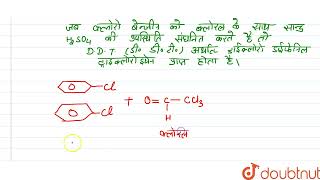 जब क्लोरो बेन्जीन को क्लोरल के साथ सान्द्र
H₂SO₄ की उपस्थिति संघनित करते है तो
D.D.T (डी० डी० टी०) अर्थात् डाईक्लोरो डाईफेनिल
ट्राईक्लोरोइथेन प्राप्त होता है।
Cl
Cl + O=C-CCl₃
H
क्लोरल
doubtnut